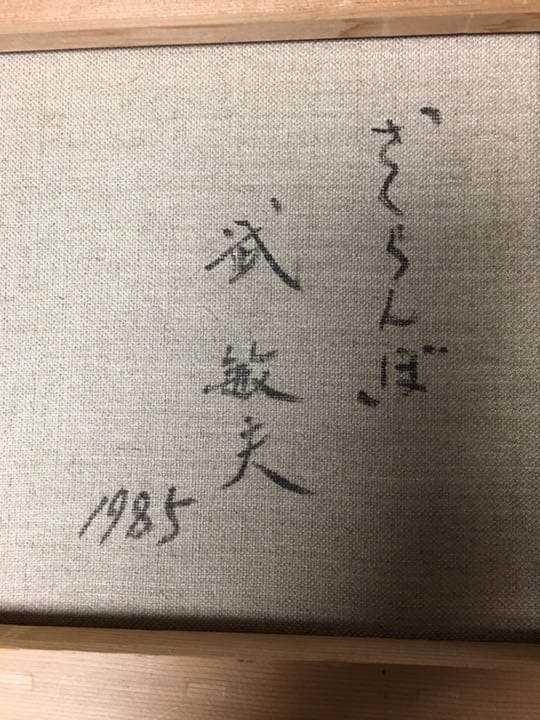 "さくらんぼ"
武 敏夫
1985